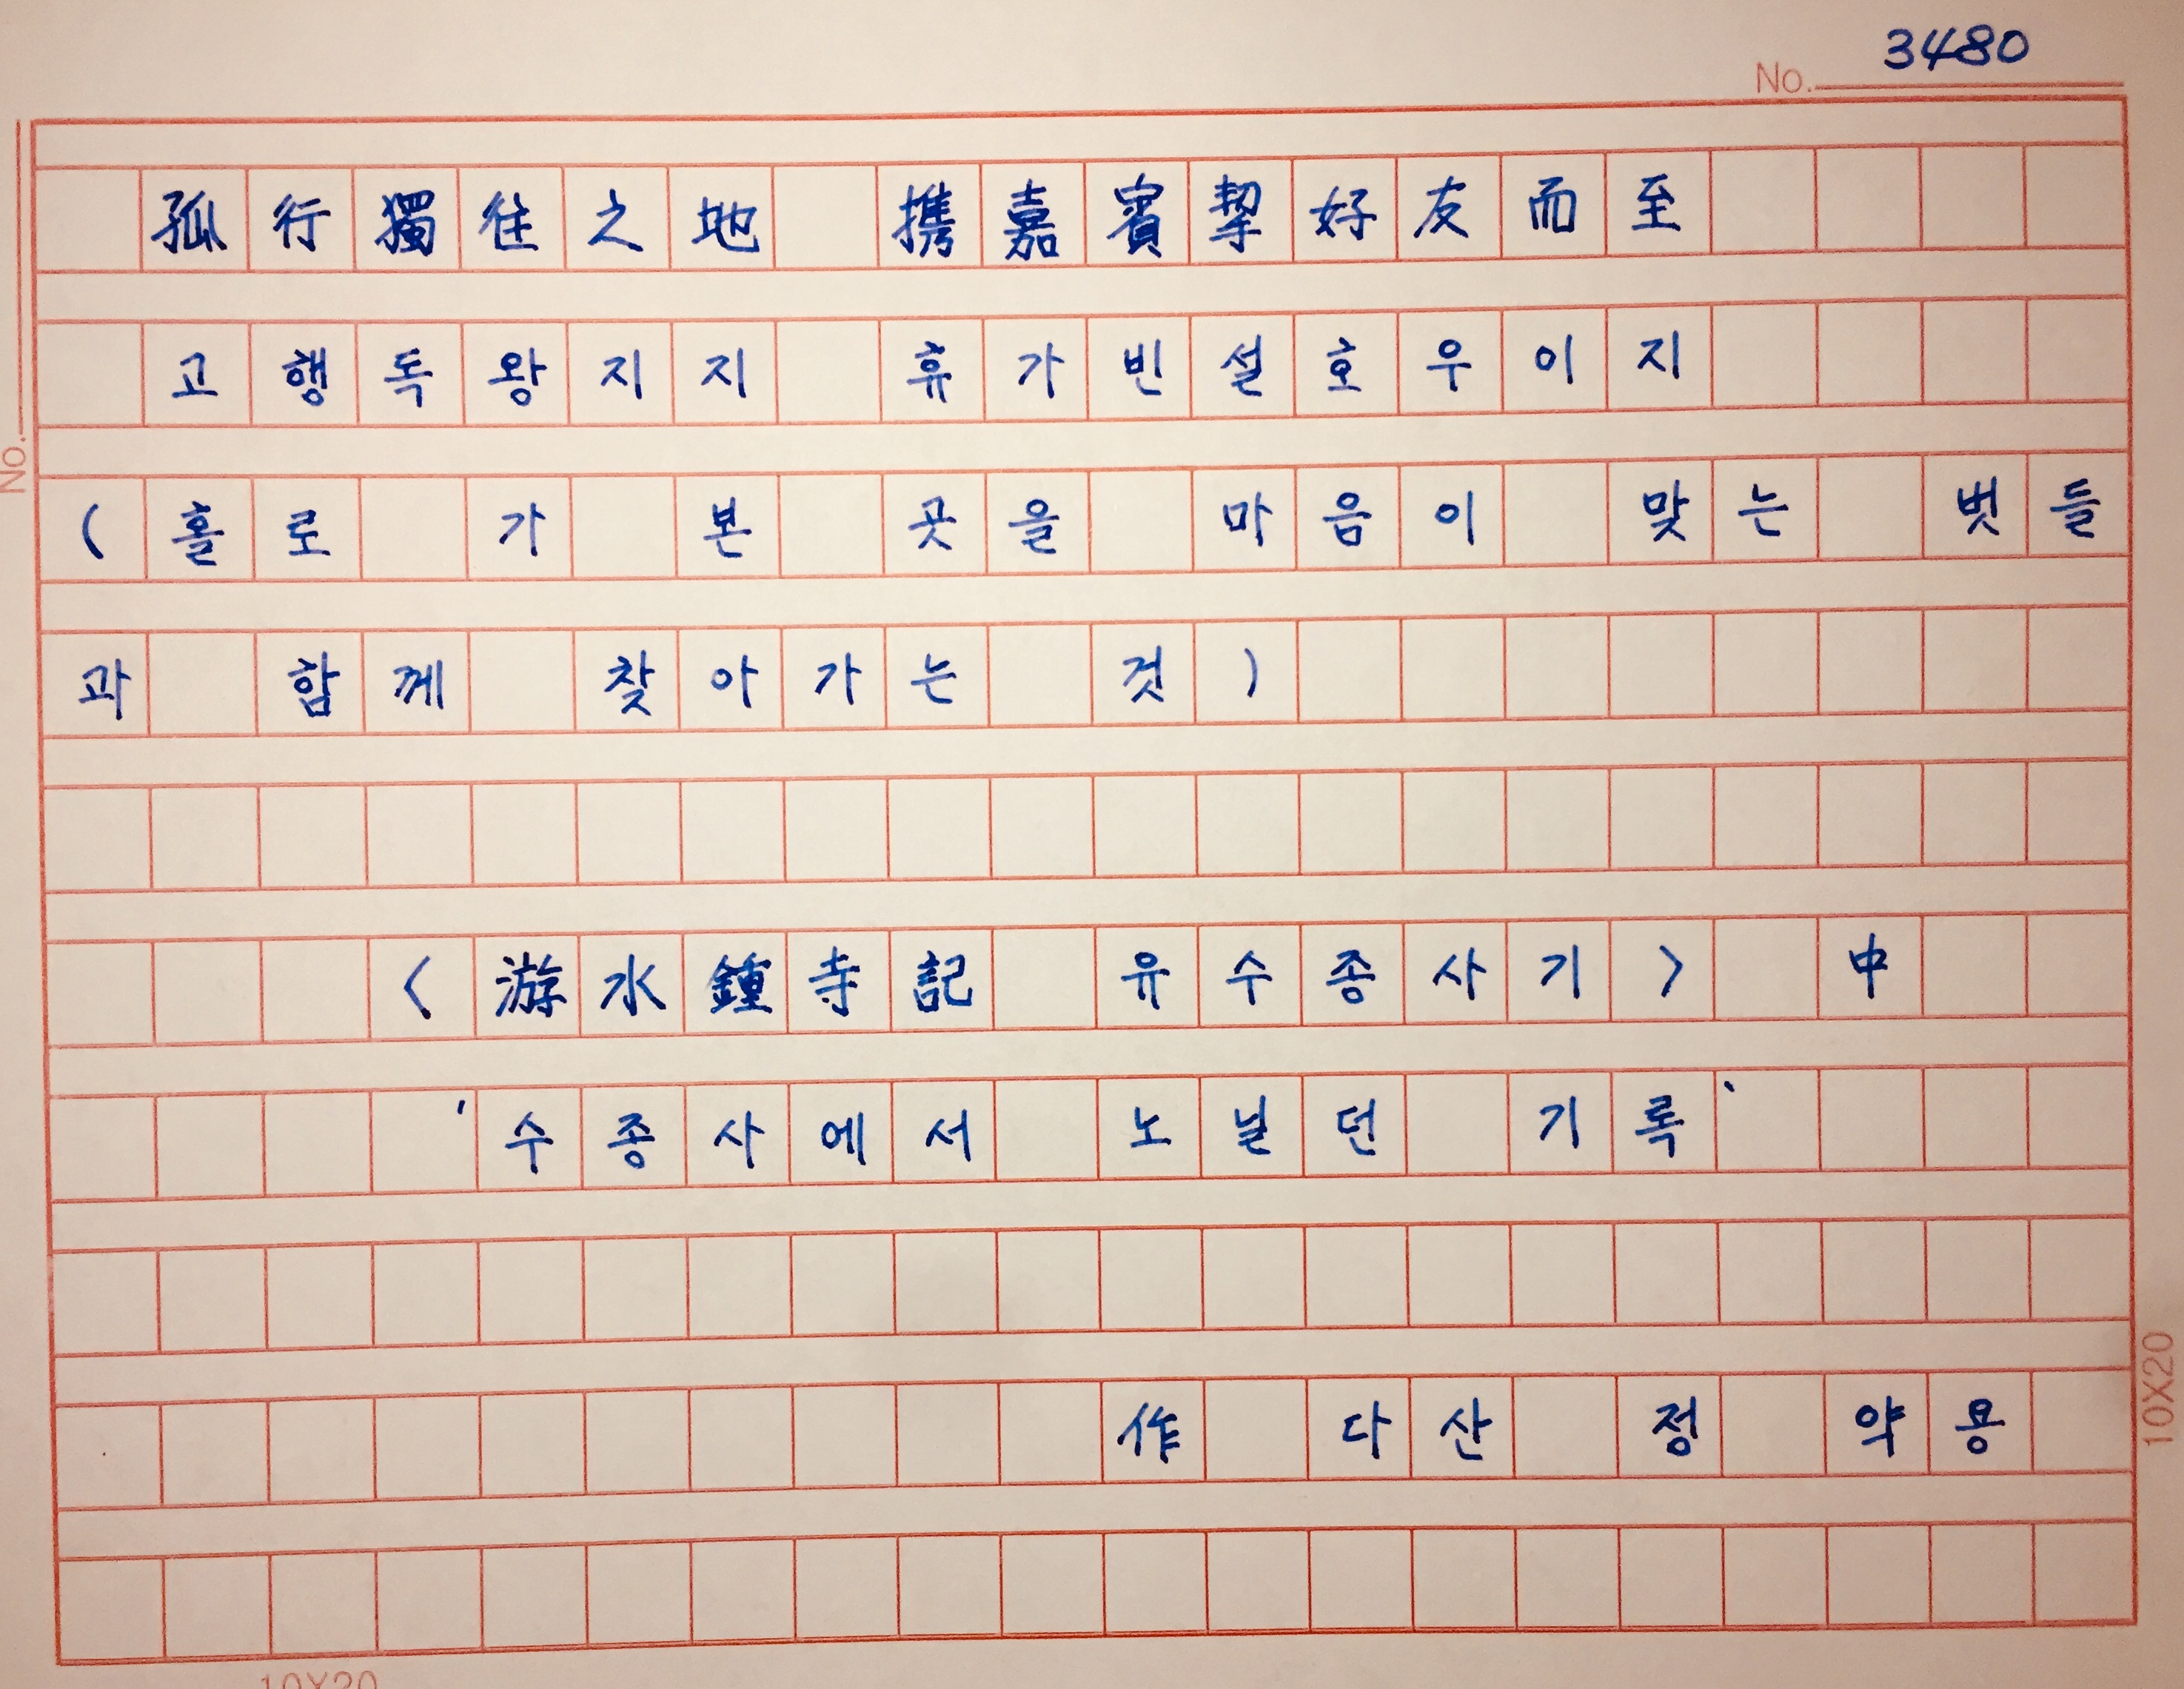 No. 3480
孤行獨往之地 携嘉賓挈好友而至
고행독왕지지 휴가빈설호우이지
No.
(홀로 가 본 곳을 마음이 맞는 벗들
과 함께 찾아가는 것)
<游水鍾寺記 유수종사기> 中
'수종사에서 노닐던 기록'
作 다산 정 약용
10X20
10X20